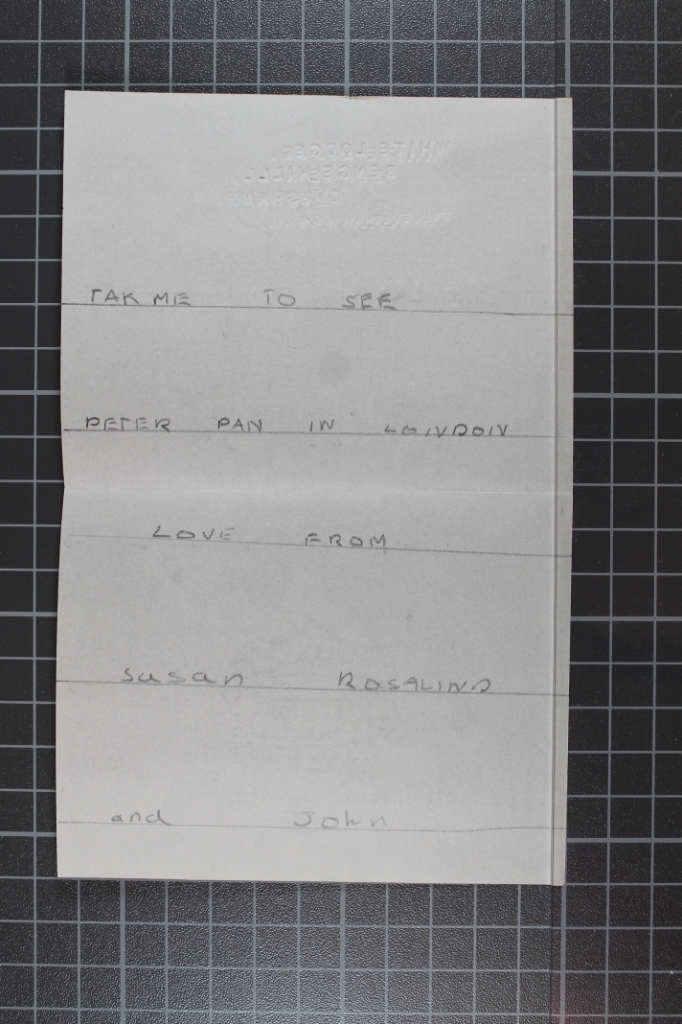 TAK ME TO SEE
PETER PAN IN LONDON
LOVE FROM
Susan ROSALIND
and John